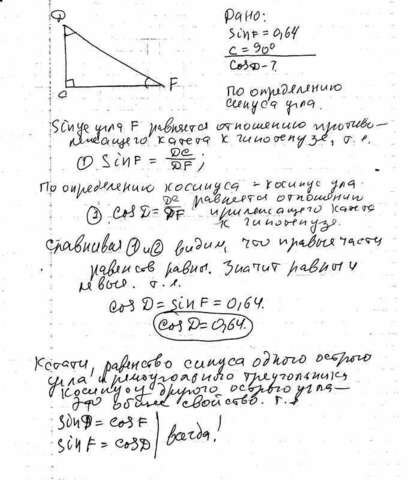 D
C
F
Дано:
sin F = 0,64
C = 90°
cos D - ?
По определению
синуса угла.
Sinус угла F равняется отношению противо-
лежащего катета к гипотенузе, т.е.
① Sin F = DC/DF;
По определению косинуса - косинус угла
② cos D = DC/DF равняется отношению
прилежащего катета
к гипотенузе.
Сравнивая ① и ② видим, что правые части
равенств равны. Значит равны и
левые. т.е.
cos D = sin F = 0,64.
cos D = 0,64.
Кстати, равенство синуса одного острого
угла прямоугольного треугольника
косинусу другого острого угла -
это общее свойство. т.е
sin D = cos F
sin F = cos D
всегда!